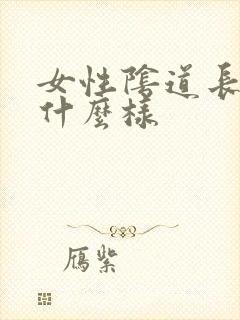 女性陰道長
什麼樣
鴈紫